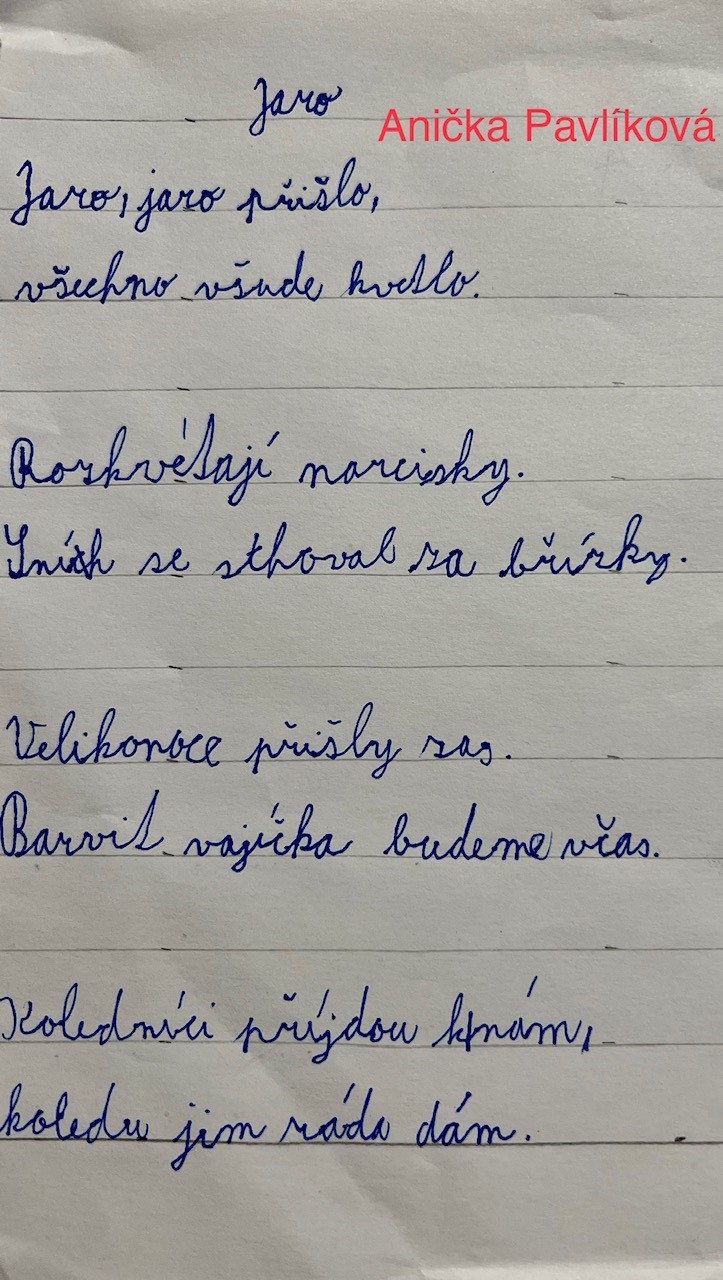 Jaro
Anička Pavlíková
Jaro, jaro přišlo,
všechno všude kvetlo.
Rozkvétají narcisky.
Sníh se schoval za břízky.
Velikonoce přišly zas.
Barvit vajíčka budeme včas.
Koledníci příjdou k nám,
koledu jim ráda dám.